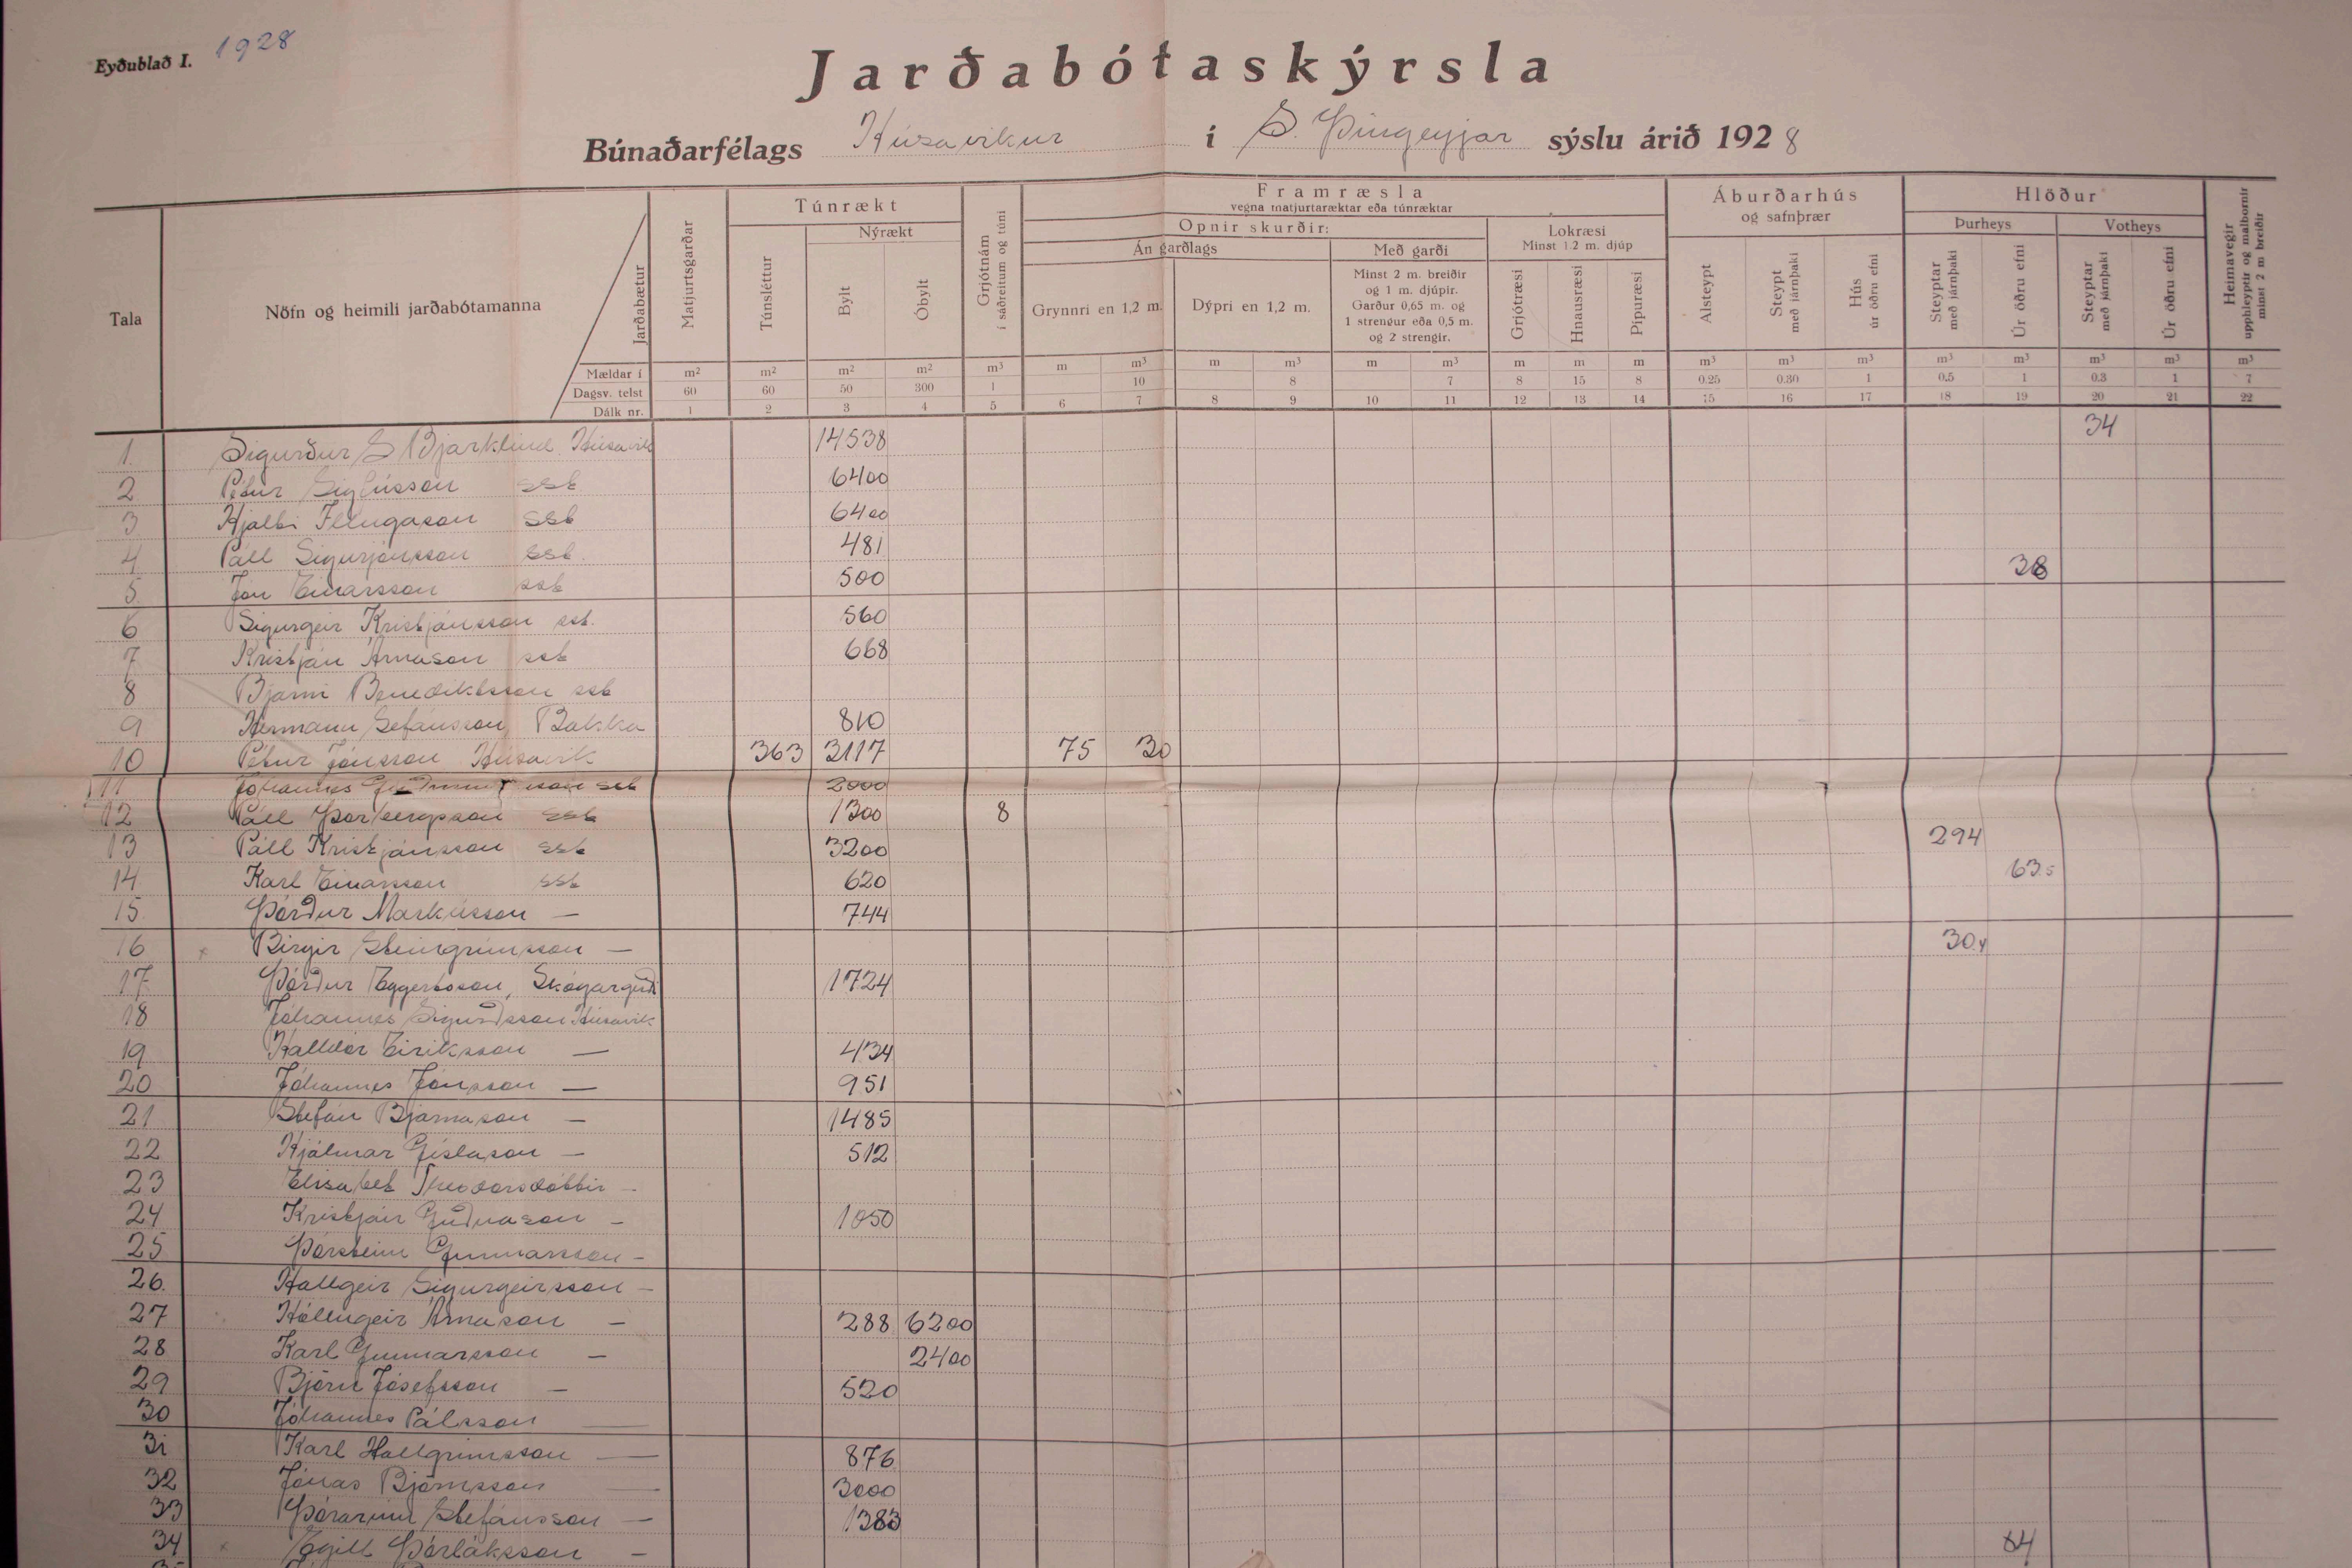 Eyðublað I. 1928
Jarðabótaskýrsla
Búnaðarfélags Húsavíkur í S. Þingeyjar sýslu árið 1928
Tala
Nöfn og heimili jarðabótamanna
Jarðabætur
Mældar í
Dagsv. telst
Dálk nr.
Matjurtsgarðar
Túnrækt
Túnsléttur
Nýrækt
Bylt
Óbylt
Grjótnám
í sáðreitum og túni
Framræsla
vegna matjurtaræktar eða túnræktar
Opnir skurðir:
Án garðlags
Grynnri en 1,2 m.
Dýpri en 1,2 m.
Með garði
Minst 2 m. breiðir
og 1 m. djúpir.
Garður 0,65 m. og
1 strengur eða 0,5 m.
og 2 strengir.
Lokræsi
Minst 1.2 m. djúp
Grjótræsi
Hnausræsi
Pípuræsi
Áburðarhús
og safnþrær
Alsteypt
Steypt
með járnþaki
Hús
úr öðru efni
Hlöður
Þurheys
Steyptar
með járnþaki
Úr öðru efni
Votheys
Steyptar
með járnþaki
Úr öðru efni
Heimavegir
upphleyptir og malbornir
minst 2 m breiðir
m² m² m² m² m³ m m³ m m³ m m³ m m m m³ m³ m³ m³ m³ m³ m³ m³
60 60 50 300 1 10 8 7 8 15 8 0.25 0.30 1 0.5 1 0.3 1 7
1 2 3 4 5 6 7 8 9 10 11 12 13 14 15 16 17 18 19 20 21 22
1. Sigurður S Bjarklind Húsavík 14538 34
2 Pétur Sigfússon sst 6400
3 Hjalti Illugason sst 6400
4 Páll Sigurjónsson sst. 481
5. Jón Einarsson sst 500 38
6 Sigurgeir Kristjánsson sst. 560
7 Kristján Árnason sst 668
8 Bjarni Benediktsson sst
9 Hermann Stefánsson Bakka 810
10 Pétur Jónsson Húsavík 363 3117 75 30
11 Jóhannes Guðmundsson sst 2000
12 Páll sst 1300 8
13 Páll Kristjánsson sst 3200 294
14. Karl Einarsson sst 620 63.5
15. Þórður Markússon — 744
16 x Birgir Steingrímsson — 30.4
17. Þórður Eggertsson, Skógargerði 1724
18 Jóhannes Sigurðsson Húsavík
19 Halldór Eiríksson — 434
20 Jóhannes Jónsson — 951
21 Stefán Bjarnason — 1485
22 Hjálmar Gíslason — 512
23 Elísabet Theodórsdóttir —
24 Kristján Guðnason — 1050
25 Þórsteinn Gunnarsson —
26. Hallgeir Sigurgeirsson —
27 Hólmgeir Árnason — 288 6200
28 Karl Gunnarsson — 2400
29 Björn Jósefsson — 520
30 Jóhannes Pálsson —
31 Karl Hallgrímsson — 876
32 Jónas Björnsson — 3000
33 Þórarinn Stefánsson — 1383
34 x Egill Þorláksson — 84